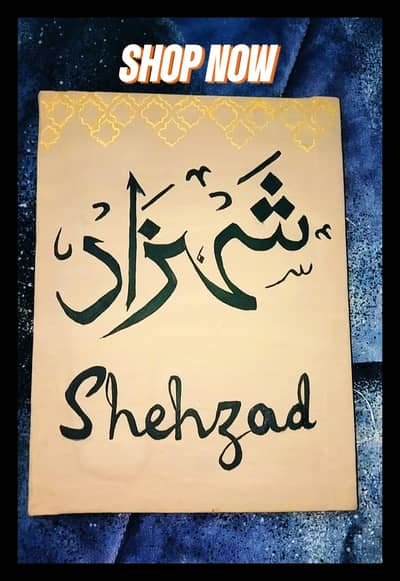 SHOP NOW
شَہزاد
Shehzad